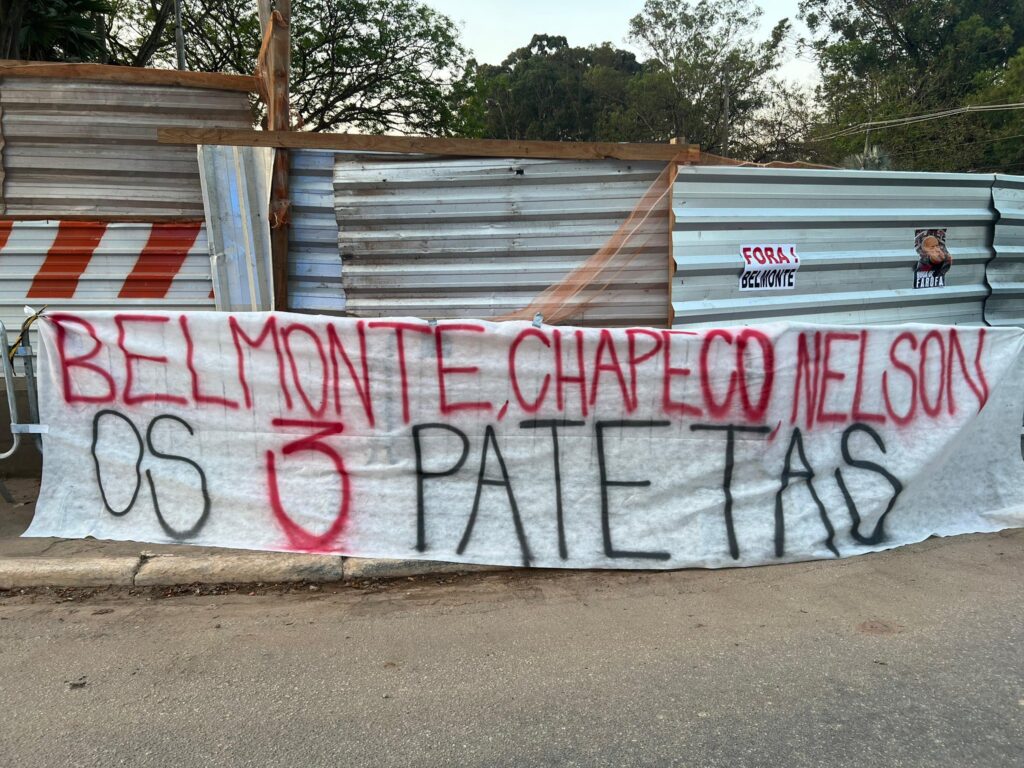 FORA!
BELMONTE
FAROFA
BELMONTE, CHAPECO, NELSON
OS 3 PATETAS